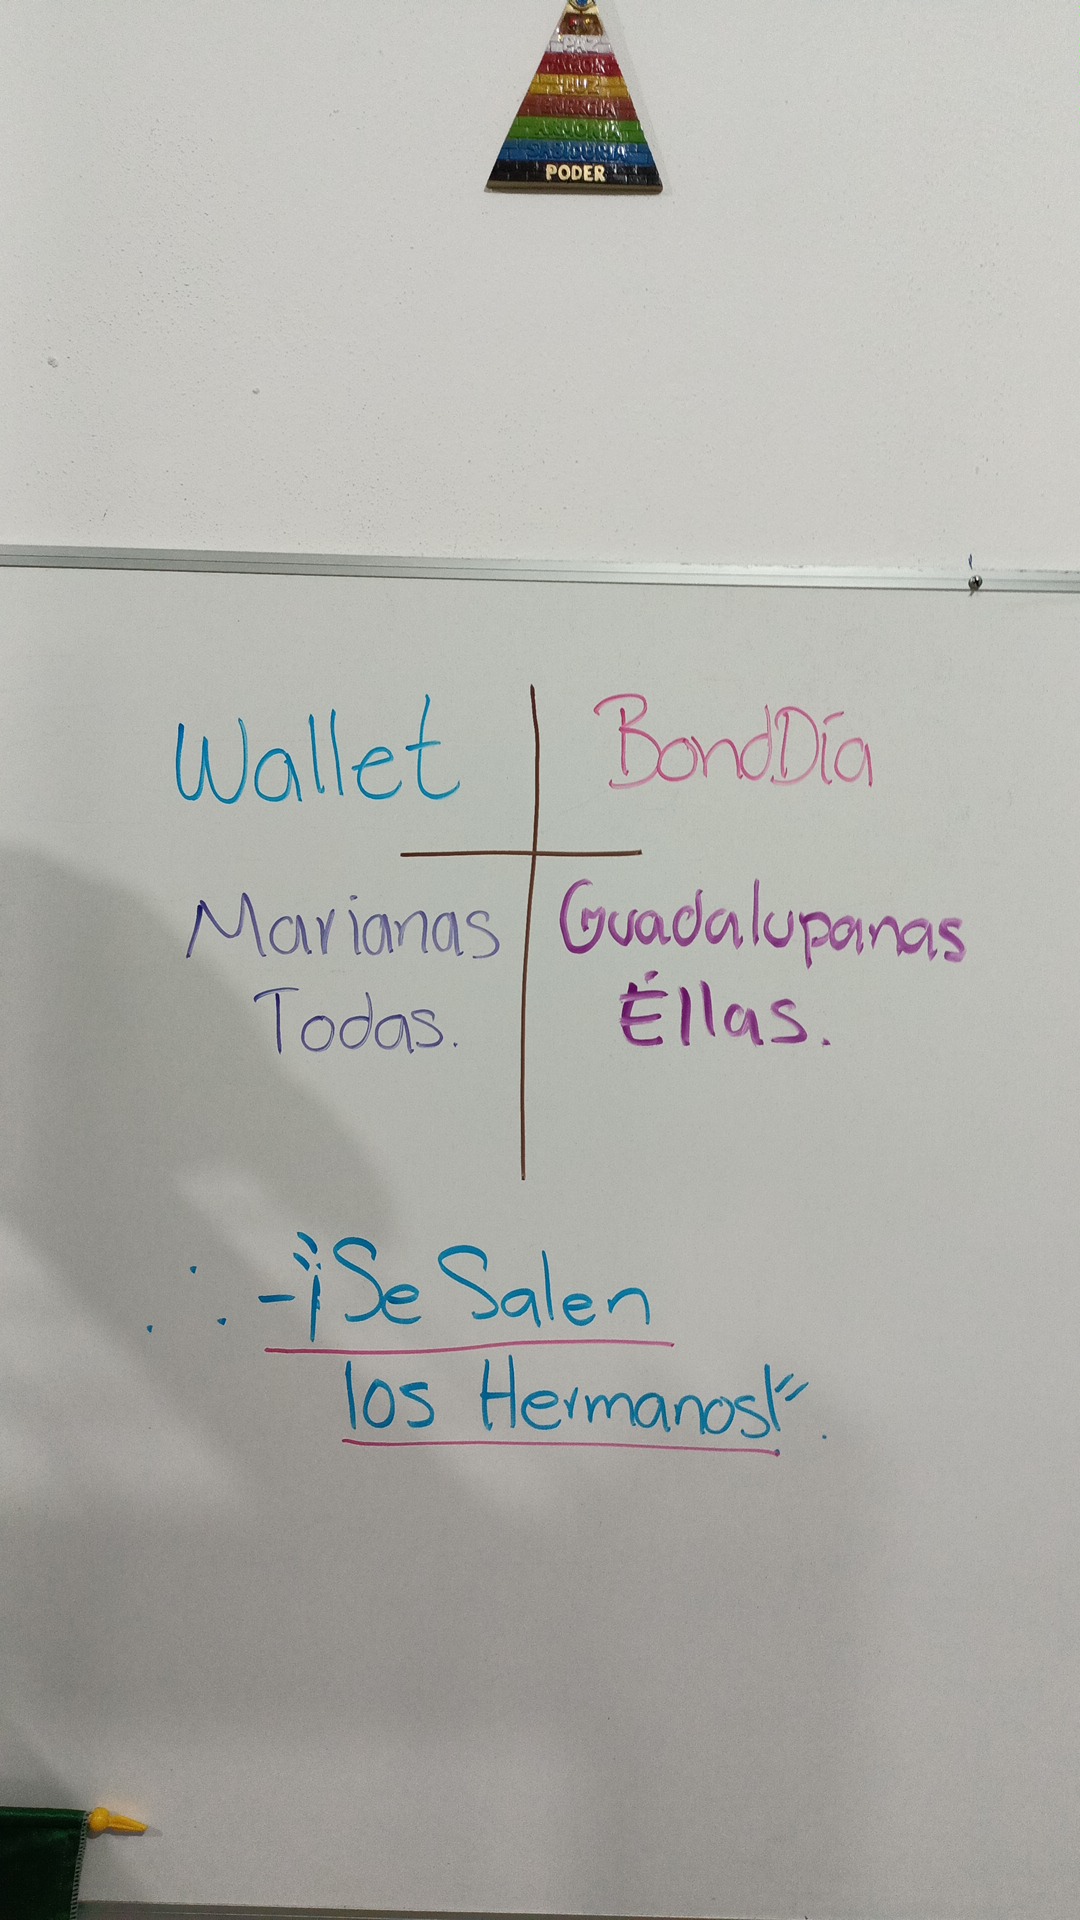 PAZ
AMOR
LUZ
ENERGIA
ARMONIA
SABIDURIA
PODER
Wallet BondDía
Marianas Guadalupanas
Todas. Éllas.
∴ -"¡Se Salen
los Hermanos!".